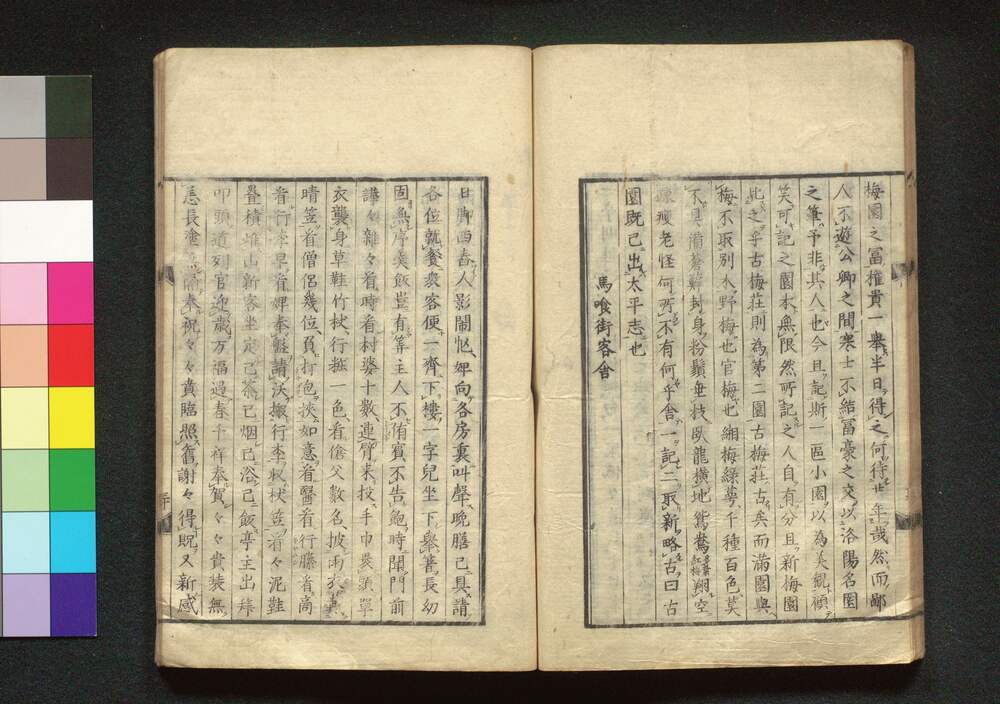 梅園之冨權貴一舉半日得之何待廿年哉然而鄙
人不遊公卿之間寒士不結冨豪之交以洛陽名園
之筆予非其人也今且記斯一區小園以為美觀傾
笑可記之園本無限然所記之人自有分且新梅園
此之乎古梅莊則為第二園古梅莊古矣而滿園與
梅不取別木野梅也官梅也緗梅綠萼千種百色莫
不具蒼蘚封身粉鬚垂枝臥龍橫地鴛鴦翔空
瘦老怪何所不有何乎舍一記二取新略古曰古
園既已出太平志也
馬喰街客舍
日脚西舂人影鬧忙婢向各房裏叫聲晚膳已具請
各位就餐衆客便一齊下樓一字兒坐下擧箸長幼
固無序羹飯豈有等主人不侑賓不告飽時聞門前
譁々雜々看時看村婆十數連臂来技手巾裝單
衣襲身草鞋竹杖行摭一色看傖父數名披雨衣
晴笠看僧侶幾位負打包挾如意看醫看行縢看商
看行李早看婢奉盤請沃搬行李収杖笠看々泥鞋
疊積堆山新客坐定已茶已烟已浴已飯亭主出
叩頭道列官迎歳万福過春千祥奉賀々々貴裝無
恙長奉祝々々貴臨照舊謝々得貺又新感